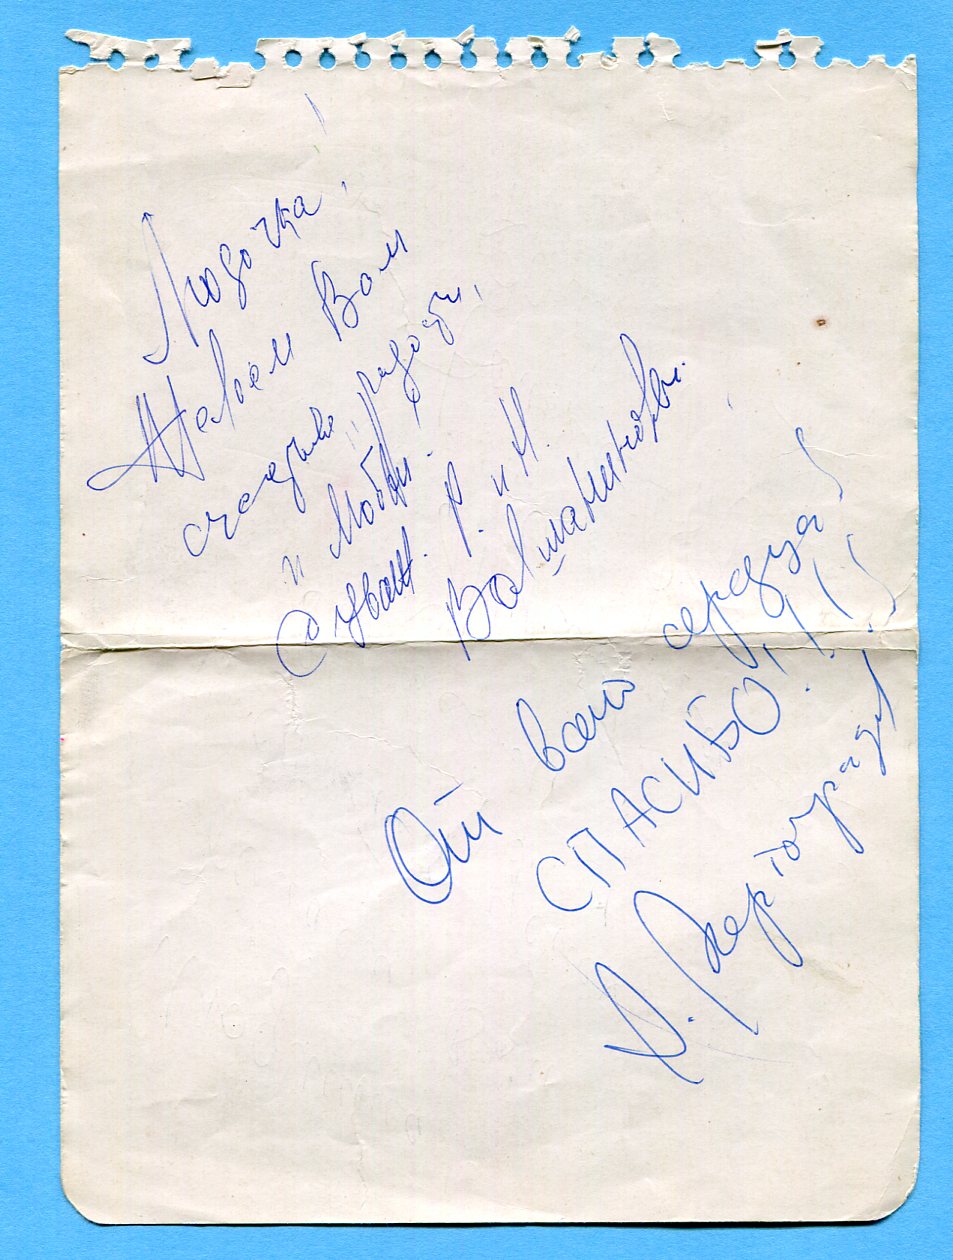 Людочка!
Желаем Вам
счастья, радости,
и любви.
С уваж. Р. и Н.
От всего сердца!
СПАСИБО!!!